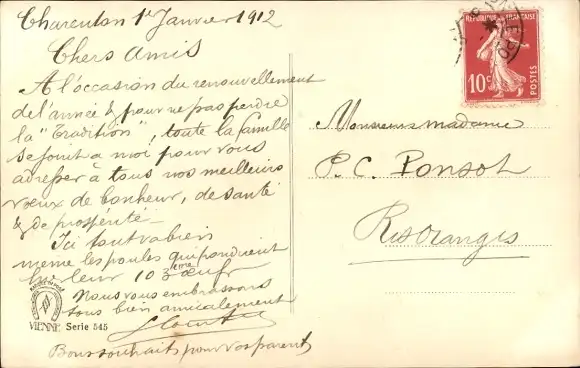 Charenton 1er Janvier 1912
Chers Amis
A l'occasion du renouvellement
de l'année & pour ne pas perdre
la "Tradition", toute la famille
se joint a moi pour vous
adresser à tous nos meilleurs
vœux de bonheur, de santé
& de prospérité —
Ici tout va bien
meme les poules qui pondent
leur 103eme œuf
Nous vous embrassons
tous bien amicalement
Bons souhaits pour vos parents
VIENNE Serie 545
REPUBLIQUE FRANÇAISE
10c
POSTES
Monsieur madame
P. C. Ponsot
Ris Orangis